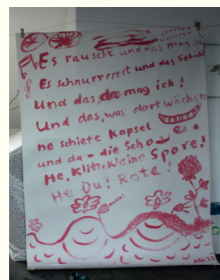 Es rauscht und das mag ich
Es schnurrrrrt und das lieb ich
Und das da mag ich!
Und das, was dort wächst
ne schiefe Kapsel
und da - die Scho
He, Klitzekleine Spore!
He Du! Rote!